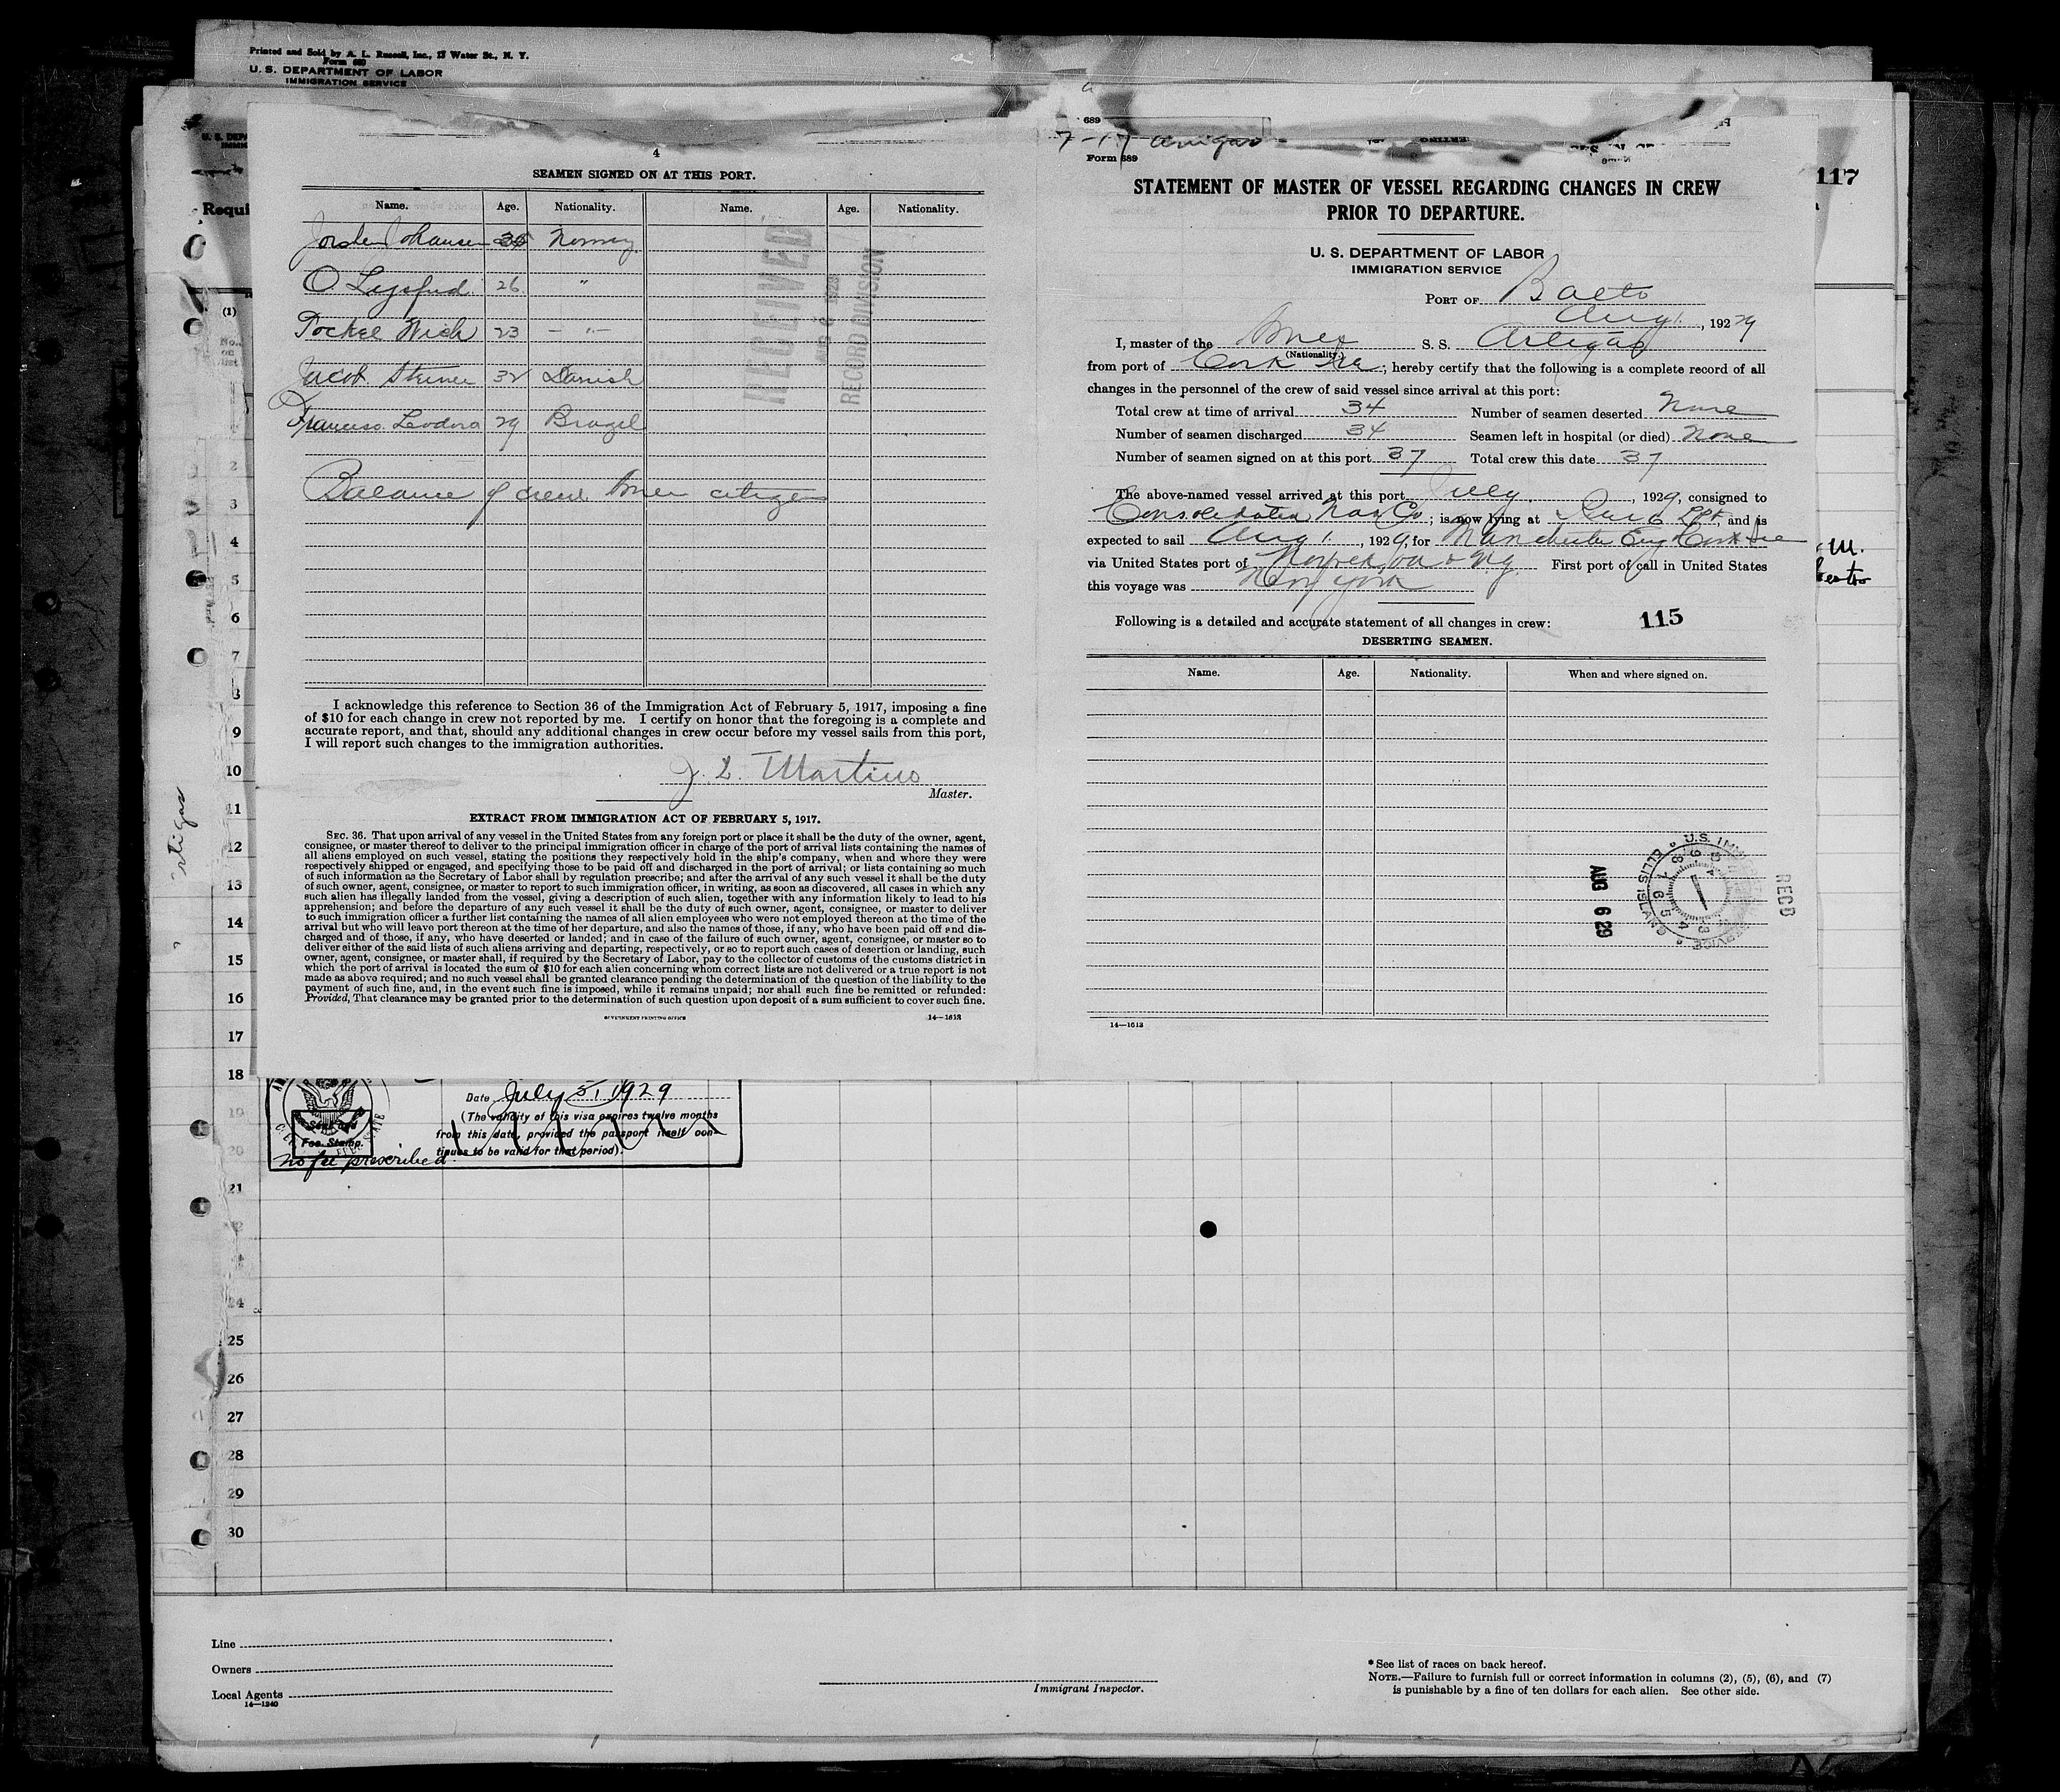 Printed and Sold by A. L. Russell, Inc., 17 Water St., N. Y.
Form 689
U. S. DEPARTMENT OF LABOR
IMMIGRATION SERVICE
Requi
(1)
No.
on
list
117
4
SEAMEN SIGNED ON AT THIS PORT.
Name. Age. Nationality. Name. Age. Nationality.
Johansen 35 Norway
O 26 "
23 — " —
Jacob 32 Danish
Francisco Leodoro 29 Brazil
Balance of crew Amer citizens
RECEIVED
AUG 6 1929
RECORD DIVISION
I acknowledge this reference to Section 36 of the Immigration Act of February 5, 1917, imposing a fine
of $10 for each change in crew not reported by me. I certify on honor that the foregoing is a complete and
accurate report, and that, should any additional changes in crew occur before my vessel sails from this port,
I will report such changes to the immigration authorities.
J. L. Martino
Master.
EXTRACT FROM IMMIGRATION ACT OF FEBRUARY 5, 1917.
SEC. 36. That upon arrival of any vessel in the United States from any foreign port or place it shall be the duty of the owner, agent,
consignee, or master thereof to deliver to the principal immigration officer in charge of the port of arrival lists containing the names of
all aliens employed on such vessel, stating the positions they respectively hold in the ship's company, when and where they were
respectively shipped or engaged, and specifying those to be paid off and discharged in the port of arrival; or lists containing so much
of such information as the Secretary of Labor shall by regulation prescribe; and after the arrival of any such vessel it shall be the duty
of such owner, agent, consignee, or master to report to such immigration officer, in writing, as soon as discovered, all cases in which any
such alien has illegally landed from the vessel, giving a description of such alien, together with any information likely to lead to his
apprehension; and before the departure of any such vessel it shall be the duty of such owner, agent, consignee, or master to deliver
to such immigration officer a further list containing the names of all alien employees who were not employed thereon at the time of the
arrival but who will leave port thereon at the time of her departure, and also the names of those, if any, who have been paid off and dis-
charged and of those, if any, who have deserted or landed; and in case of the failure of such owner, agent, consignee, or master so to
deliver either of the said lists of such aliens arriving and departing, respectively, or so to report such cases of desertion or landing, such
owner, agent, consignee, or master shall, if required by the Secretary of Labor, pay to the collector of customs of the customs district in
which the port of arrival is located the sum of $10 for each alien concerning whom correct lists are not delivered or a true report is not
made as above required; and no such vessel shall be granted clearance pending the determination of the question of the liability to the
payment of such fine, and, in the event such fine is imposed, while it remains unpaid; nor shall such fine be remitted or refunded:
Provided, That clearance may be granted prior to the determination of such question upon deposit of a sum sufficient to cover such fine.
GOVERNMENT PRINTING OFFICE 14—1613
689
7-17 Artigas
Form 689
STATEMENT OF MASTER OF VESSEL REGARDING CHANGES IN CREW
PRIOR TO DEPARTURE.
U. S. DEPARTMENT OF LABOR
IMMIGRATION SERVICE
PORT OF Balto
Aug 1, 1929
I, master of the Amer S. S. Artigas
(Nationality.)
from port of Cork Ire; hereby certify that the following is a complete record of all
changes in the personnel of the crew of said vessel since arrival at this port:
Total crew at time of arrival 34 Number of seamen deserted None
Number of seamen discharged 34 Seamen left in hospital (or died) None
Number of seamen signed on at this port 37 Total crew this date 37
The above-named vessel arrived at this port July, 1929, consigned to
Consolidated Nav Co; is now lying at Pier 6 and is
expected to sail Aug 1, 1929, for Manchester Eng Cork Ire
via United States port of Norfolk, Va & NY. First port of call in United States
this voyage was New York
Following is a detailed and accurate statement of all changes in crew: 115
DESERTING SEAMEN.
Name. Age. Nationality. When and where signed on.
AUG 6 29
RECD
U.S. IMMIGRATION SERVICE ELLIS ISLAND
14—1613
2
3
4
5
6
7
8
9
10
11
12
13
14
15
16
17
18
19
20
21
24
25
26
27
28
29
30
Artigas
Date July 5, 1929
(The validity of this visa expires twelve months
from this date, provided the passport itself con-
tinues to be valid for that period).
Seal and
Fee Stamp.
No fee prescribed
Line
Owners
Local Agents
14—1240
Immigrant Inspector.
* See list of races on back hereof.
NOTE.—Failure to furnish full or correct information in columns (2), (5), (6), and (7)
is punishable by a fine of ten dollars for each alien. See other side.